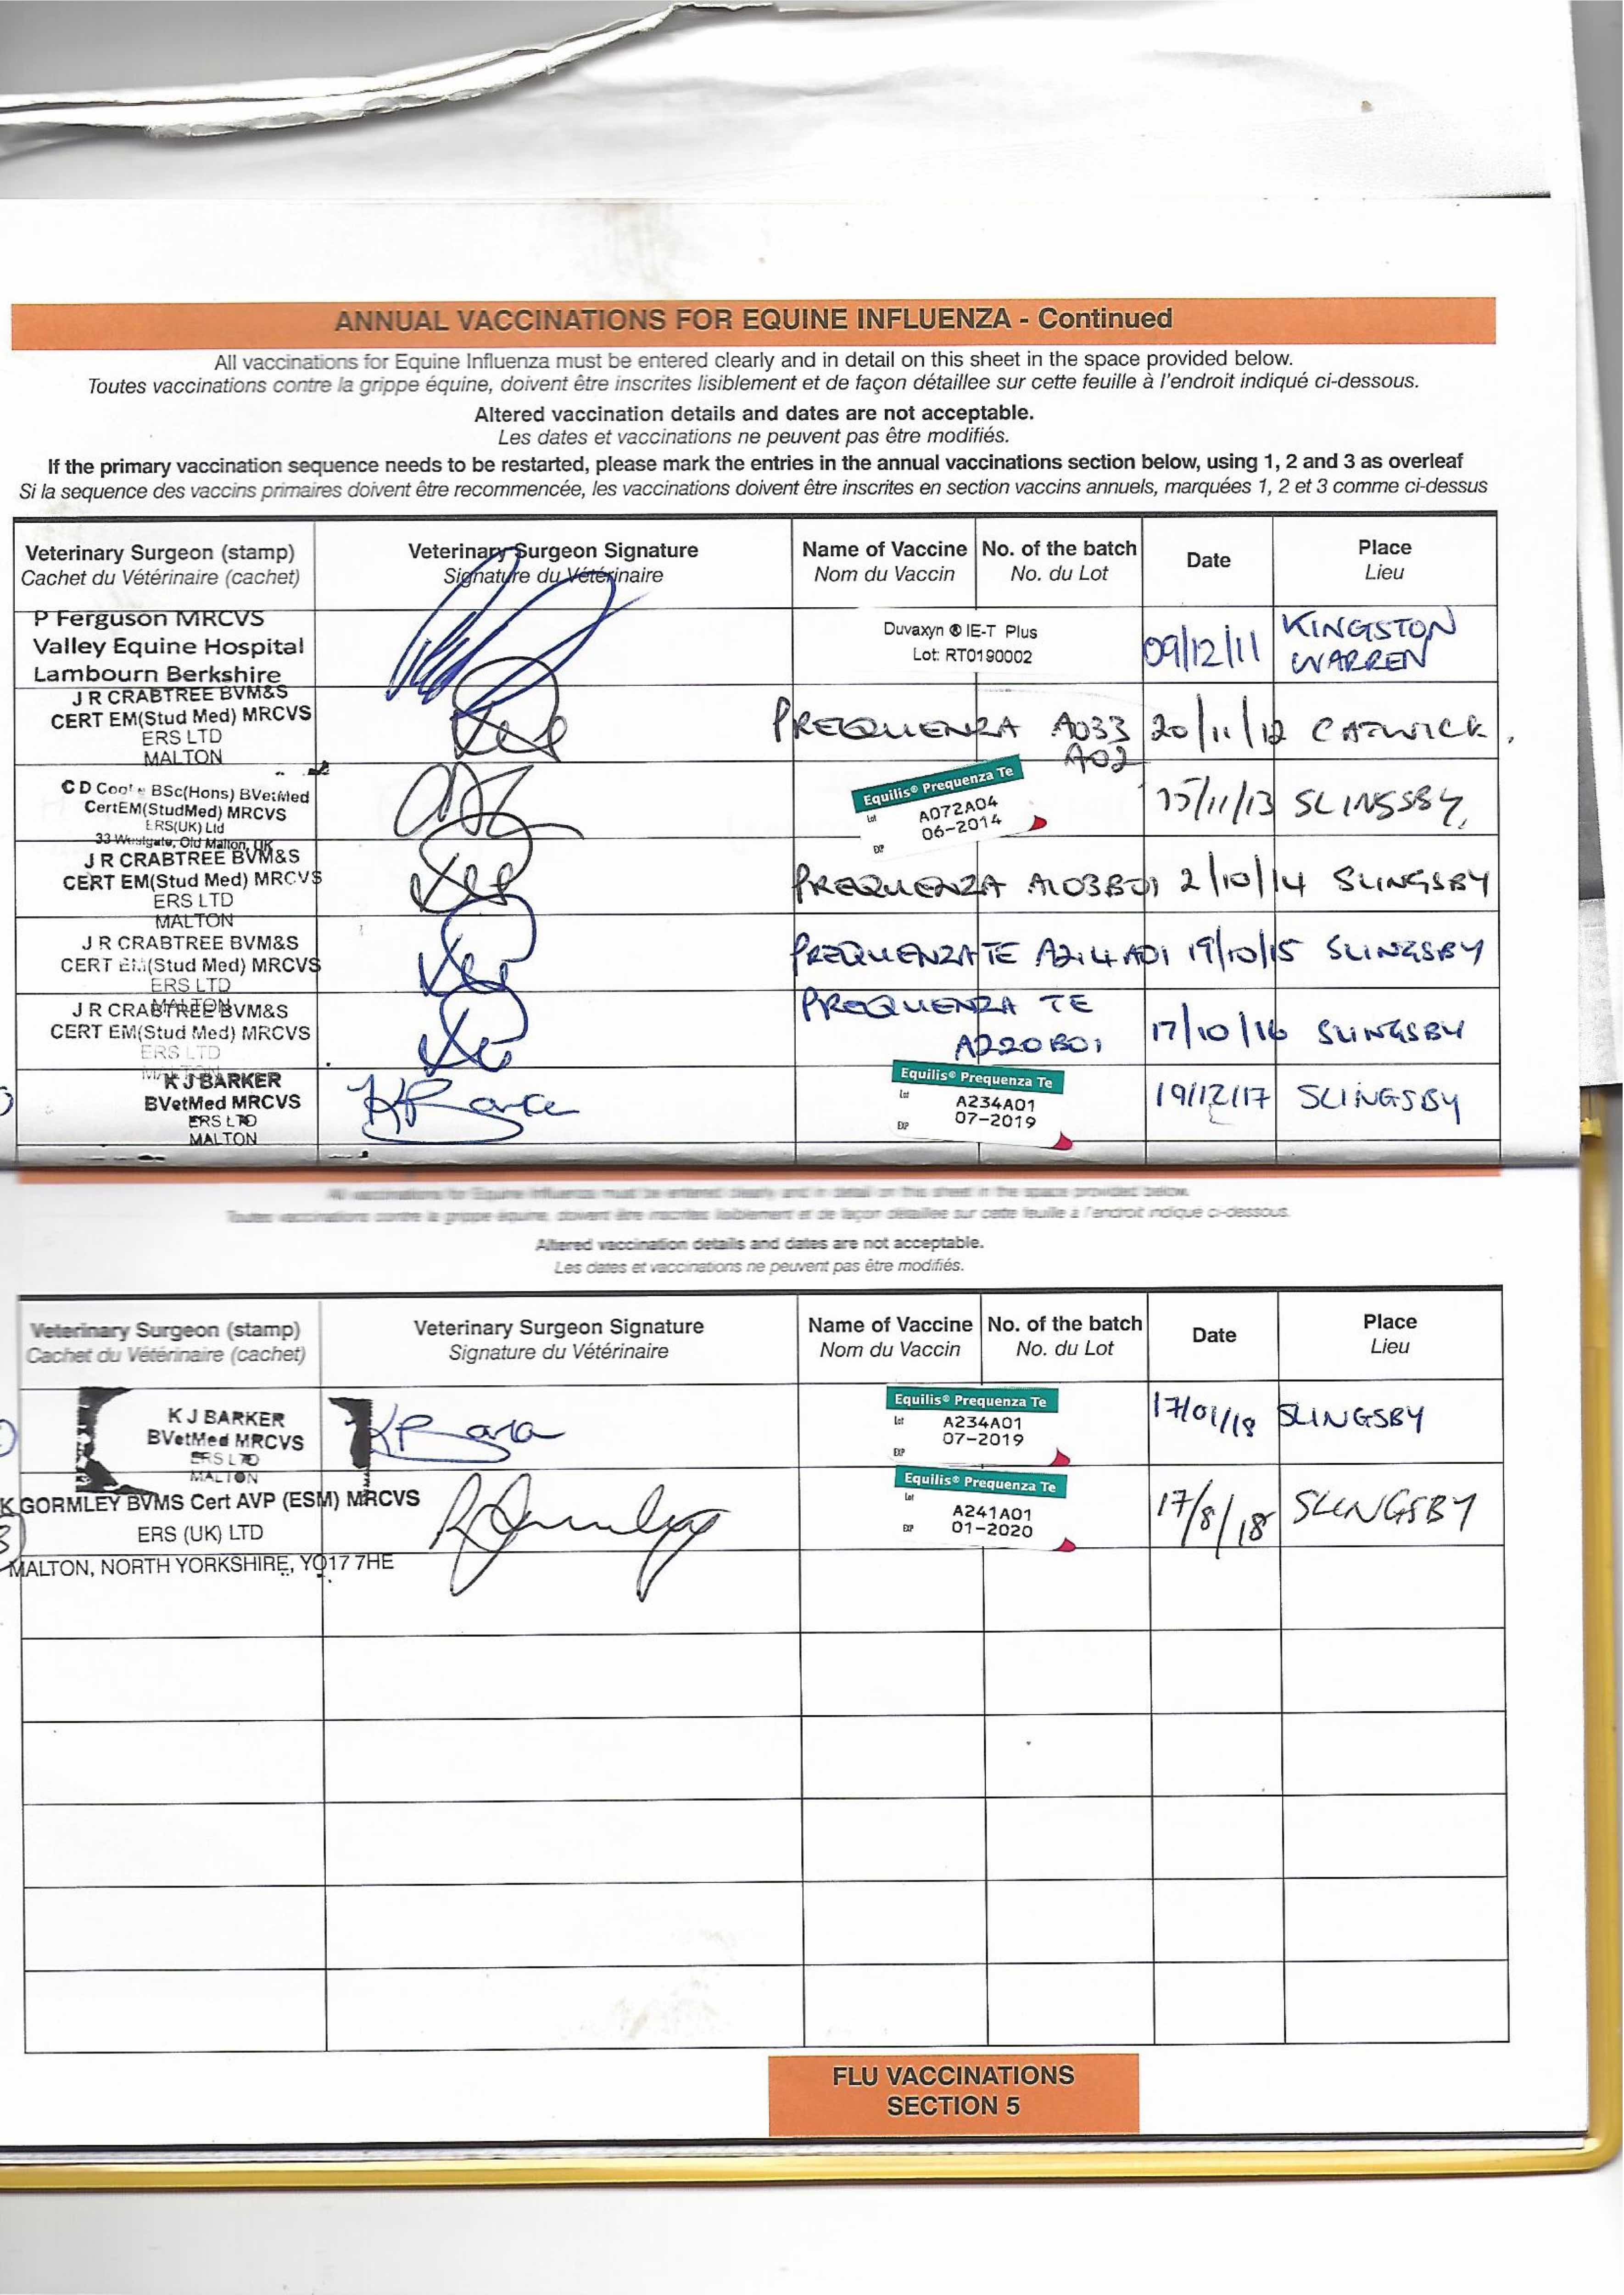 ANNUAL VACCINATIONS FOR EQUINE INFLUENZA - Continued
All vaccinations for Equine Influenza must be entered clearly and in detail on this sheet in the space provided below.
Toutes vaccinations contre la grippe équine, doivent être inscrites lisiblement et de façon détaillee sur cette feuille à l'endroit indiqué ci-dessous.
Altered vaccination details and dates are not acceptable.
Les dates et vaccinations ne peuvent pas être modifiés.
If the primary vaccination sequence needs to be restarted, please mark the entries in the annual vaccinations section below, using 1, 2 and 3 as overleaf
Si la sequence des vaccins primaires doivent être recommencée, les vaccinations doivent être inscrites en section vaccins annuels, marquées 1, 2 et 3 comme ci-dessus
Veterinary Surgeon (stamp) Veterinary Surgeon Signature Name of Vaccine No. of the batch Date Place
Cachet du Vétérinaire (cachet) Signature du Vétérinaire Nom du Vaccin No. du Lot Lieu
P Ferguson MRCVS
Valley Equine Hospital
Lambourn Berkshire
Duvaxyn ® IE-T Plus
Lot: RT0190002
09/12/11
KINGSTON
WARREN
J R CRABTREE BVM&S
CERT EM(Stud Med) MRCVS
ERS LTD
MALTON
PREQUENZA A033 20/11/12 CATWICK.
A02
C D BSc(Hons) BVetMed
CertEM(StudMed) MRCVS
ERS(UK) Ltd
33 Westgate, Old Malton, UK
Equilis® Prequenza Te
Lot A072A04
EXP 06-2014
15/11/13 SLINGSBY,
J R CRABTREE BVM&S
CERT EM(Stud Med) MRCVS
ERS LTD
MALTON
PREQUENZA A103B01 2/10/14 SLINGSBY
J R CRABTREE BVM&S
CERT EM(Stud Med) MRCVS
ERS LTD
MALTON
PREQUENZA TE A214A01 19/10/15 SLINGSBY
J R CRABTREE BVM&S
CERT EM(Stud Med) MRCVS
ERS LTD
PREQUENZA TE
A220B01
17/10/16 SLINGSBY
K J BARKER
BVetMed MRCVS
ERS LTD
MALTON
Equilis® Prequenza Te
Lot A234A01
EXP 07-2019
19/12/17 SLINGSBY
All vaccinations for Equine Influenza must be entered clearly and in detail on this sheet in the space provided below.
Toutes vaccinations contre la grippe équine, doivent être inscrites lisiblement et de façon détaillee sur cette feuille à l'endroit indiqué ci-dessous.
Altered vaccination details and dates are not acceptable.
Les dates et vaccinations ne peuvent pas être modifiés.
Veterinary Surgeon (stamp) Veterinary Surgeon Signature Name of Vaccine No. of the batch Date Place
Cachet du Vétérinaire (cachet) Signature du Vétérinaire Nom du Vaccin No. du Lot Lieu
K J BARKER
BVetMed MRCVS
ERS LTD
MALTON
Equilis® Prequenza Te
Lot A234A01
EXP 07-2019
17/01/18 SLINGSBY
K GORMLEY BVMS Cert AVP (ESM) MRCVS
ERS (UK) LTD
MALTON, NORTH YORKSHIRE, YO17 7HE
3
Equilis® Prequenza Te
Lot A241A01
EXP 01-2020
17/8/18 SLINGSBY
FLU VACCINATIONS
SECTION 5